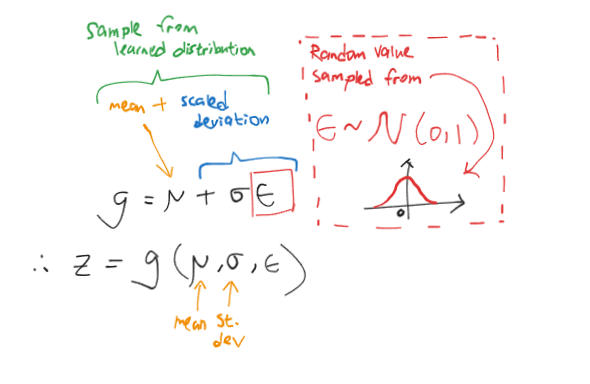 Sample from
learned distribution
mean + scaled
deviation
g = μ + σ ϵ
∴ z = g (μ, σ, ϵ)
mean St.
dev
Random value
sampled from
ϵ ~ N (0,1)
0